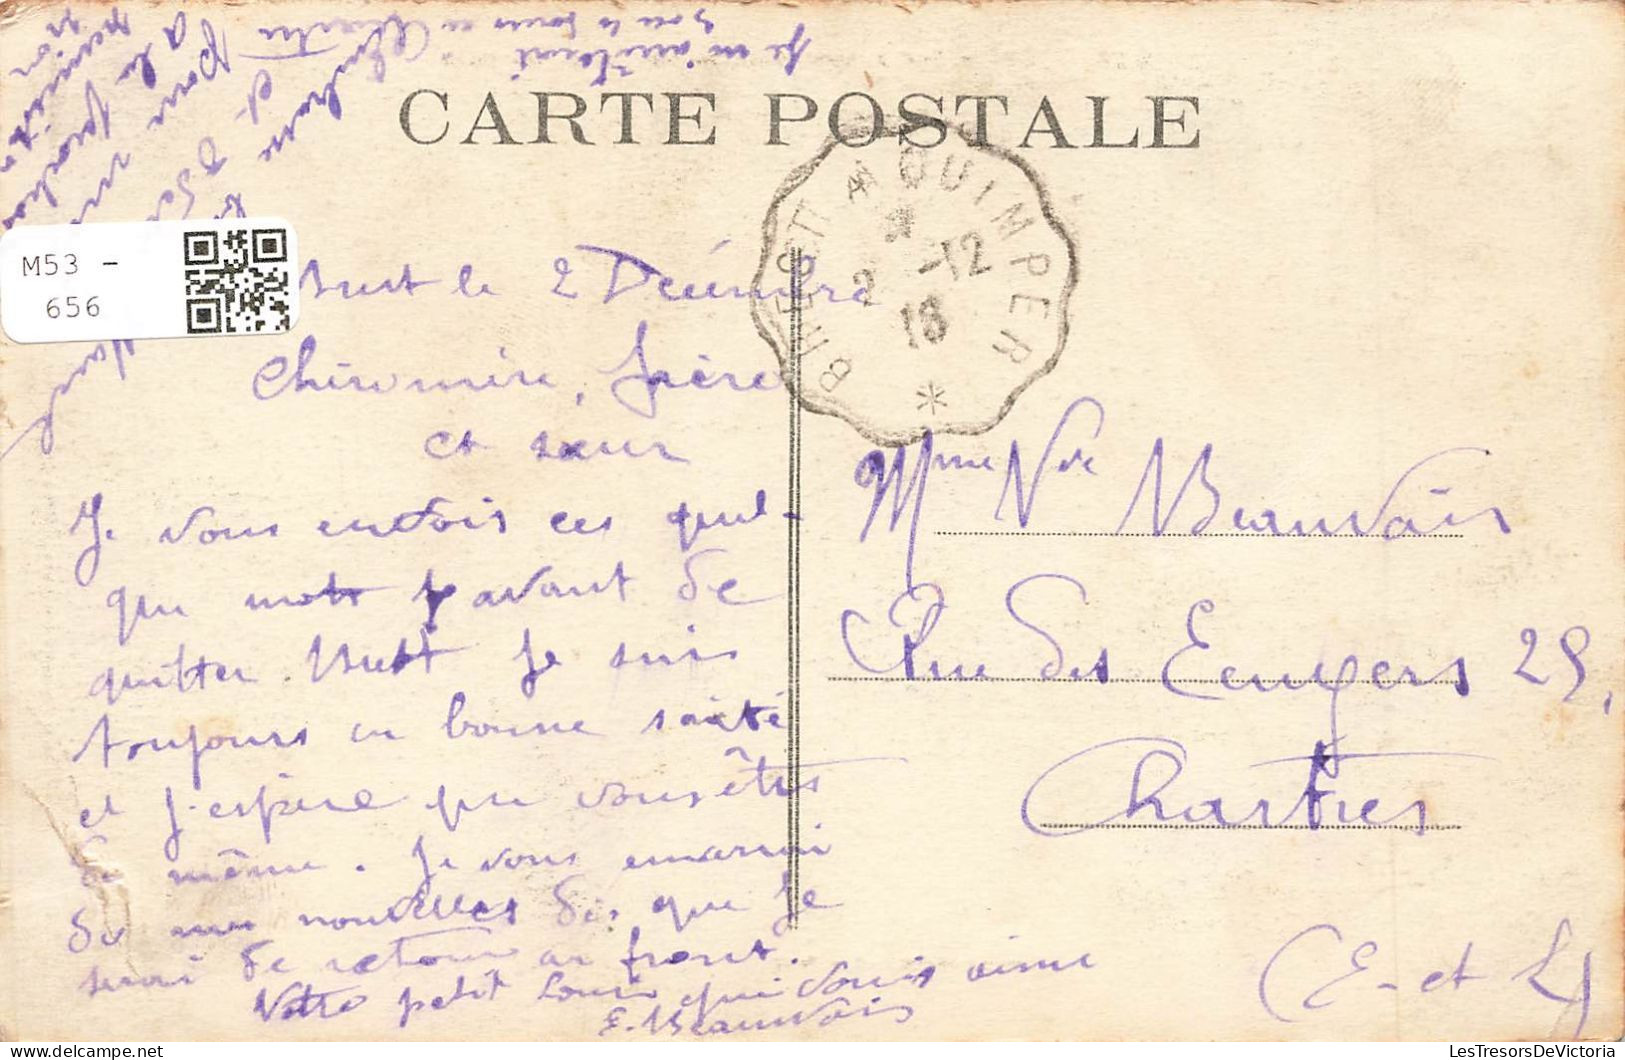 Je m'arrêterai
CARTE POSTALE
BREST A QUIMPER
2 -12
16
M53 -
656
Brest le 2 Décembre
Chère mère, frère
et sœur
Je vous envois ces quel-
que mots avant de
quitter Brest Je suis
toujours en bonne santé
et j'espère que vous êtes
de même. Je vous enverrai
de mes nouvelles dès que je
serai de retour au front.
Votre petit Louis qui vous aime
E. Beauvais
Mme Vve Beauvais
Rue des Ecuyers 25,
Chartres
(E.-et L)
LesTresorsDeVictoria.com